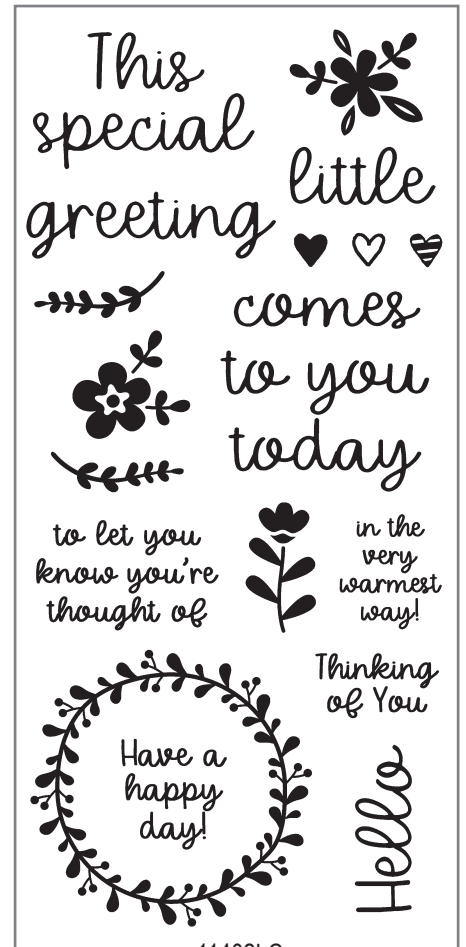 This
special
greeting
little
comes
to you
today
to let you
know you're
thought of
in the
very
warmest
way!
Thinking
of You
Have a
happy
day!
Hello